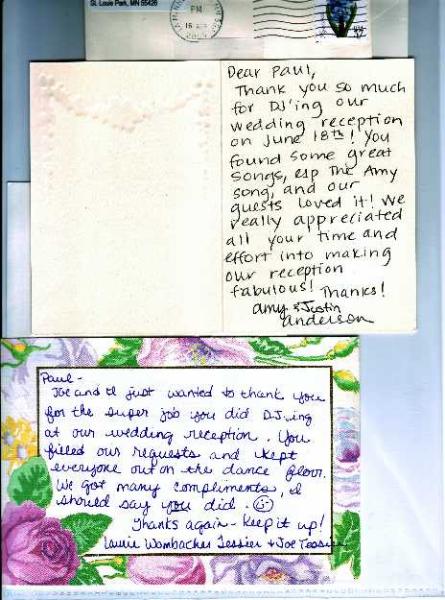 St. Louis Park, MN 55426
PM
Dear Paul,
Thank you so much
for DJ'ing our
wedding reception
on June 18th! You
found some great
songs, esp The Amy
song, and our
guests loved it! We
really appreciated
all your time and
effort into making
our reception
fabulous! Thanks!
Amy & Justin
Anderson
Paul-
Joe and I just wanted to thank you
for the super job you did DJ-ing
at our wedding reception. You
filled our requests and kept
everyone out on the dance floor.
We got many compliments, I
should say you did. ☺
Thanks again - Keep it up!
Laurie Wombacher Tessier + Joe Tessier